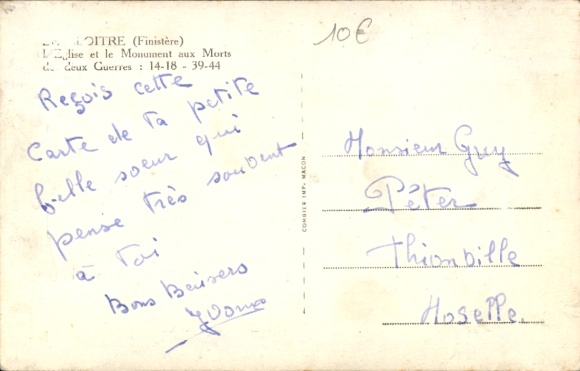 LOITRE (Finistère)
L'Eglise et le Monument aux Morts
de deux Guerres : 14-18 - 39-44
10€
Reçois cette
Carte de ta petite
belle soeur qui
pense très souvent
à toi
Bons Baisers
Yvonne
COMBIER IMP. MACON
Monsieur Guy
Péter
Thionville
Moselle.